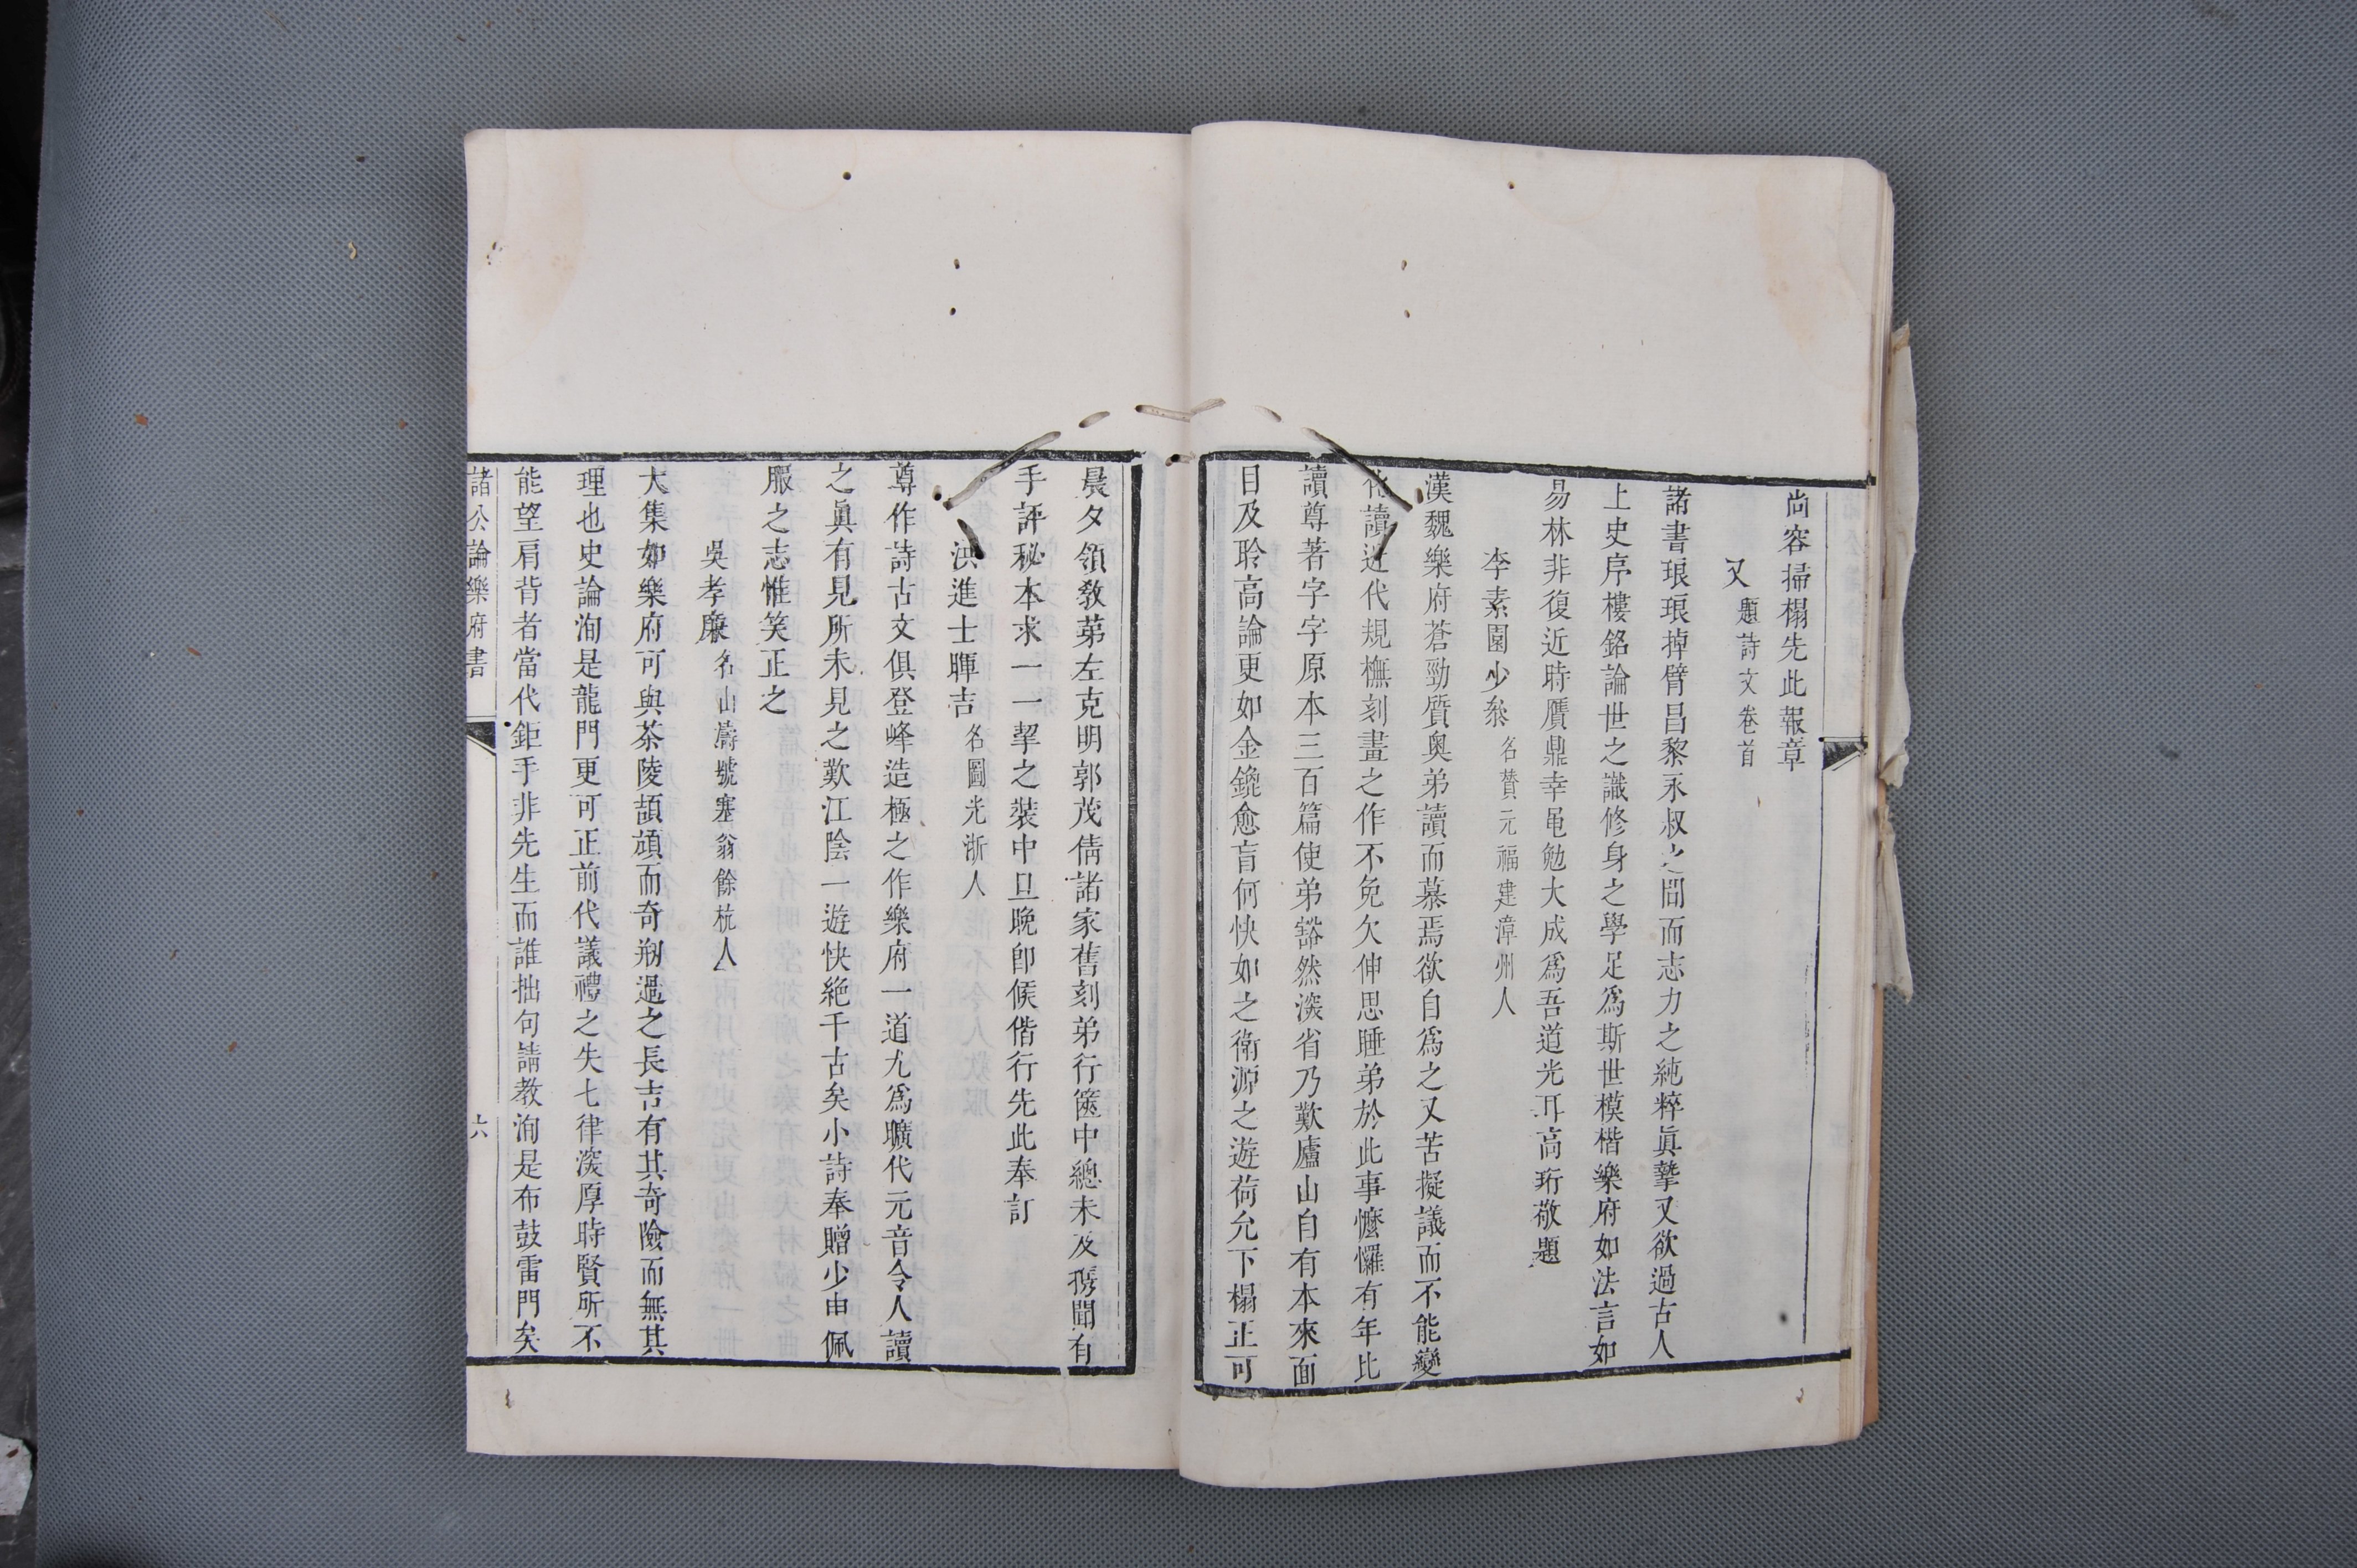 尚容掃榻先此報章
又題詩文卷首
諸書琅琅掉臂昌黎永叔之間而志力之純粹眞摯又欲過古人
上史序樓銘論世之識修身之學足爲斯世模楷樂府如法言如
易林非復近時贋鼎幸黽勉大成爲吾道光耳高珩敬題
李素園少參名贊元福建漳州人
漢魏樂府蒼勁質奧弟讀而慕焉欲自爲之又苦擬議而不能變
化讀近代規橅刻畫之作不免欠伸思睡弟於此事懡㦬有年比
讀尊著字字原本三百篇使弟豁然深省乃歎廬山自有本來面
目及聆高論更如金鎞愈盲何快如之衛源之遊荷允下榻正可
晨夕領敎苐左克明郭茂倩諸家舊刻弟行篋中總未及攜聞有
手評秘本求一一挈之裝中旦晚卽候偕行先此奉訂
洪進士暉吉名圖光浙人
尊作詩古文俱登峰造極之作樂府一道尤爲曠代元音令人讀
之眞有見所未見之歎江陰一遊快絕千古矣小詩奉贈少由佩
服之志惟笑正之
吳孝廉名山濤號塞翁餘杭人
大集如樂府可與茶陵頡頏而奇刱過之長吉有其奇險而無其
理也史論洵是龍門更可正前代議禮之失七律深厚時賢所不
能望肩背者當代鉅手非先生而誰拙句請敎洵是布鼓雷門矣
諸公論樂府書
六